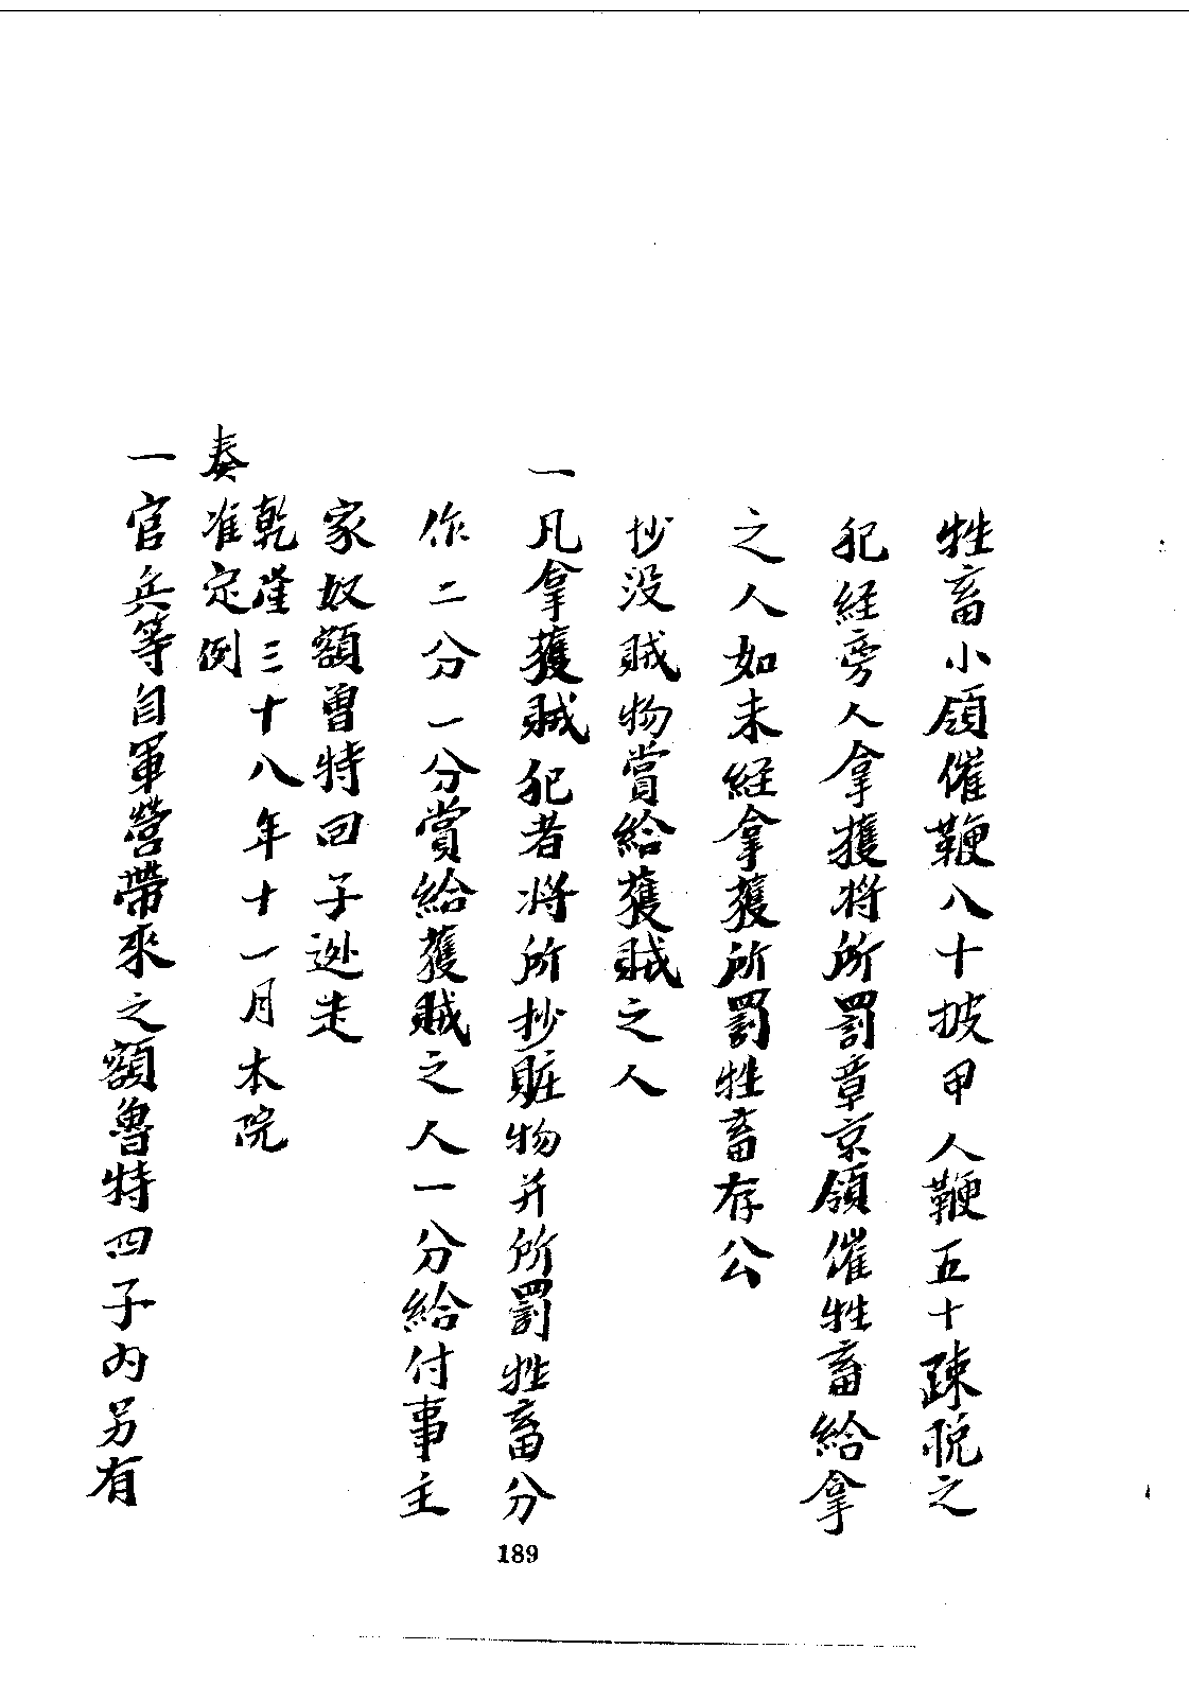 牲畜小領催鞭八十披甲人鞭五十踈脱之
犯経旁人拿獲将所罰章京領催牲畜給拿
之人如未経拿獲所罰牲畜存公
抄没賊物賞給獲賊之人
一凡拿獲賊犯者将所抄賍物并所罰牲畜分
作二分一分賞給獲賊之人一分給付事主
家奴額魯特回子逃走
乾隆三十八年十一月本院
奏准定例
一官兵等自軍營帶來之額魯特回子內另有
189